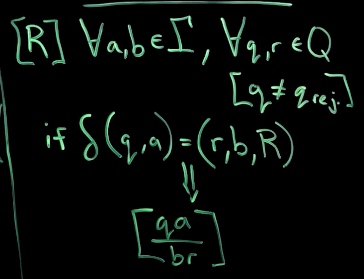 [R] ∀a,b∈Γ, ∀q,r∈Q
[q≠q rej.]
if δ(q,a)=(r,b,R)
⇓
[qa
br]